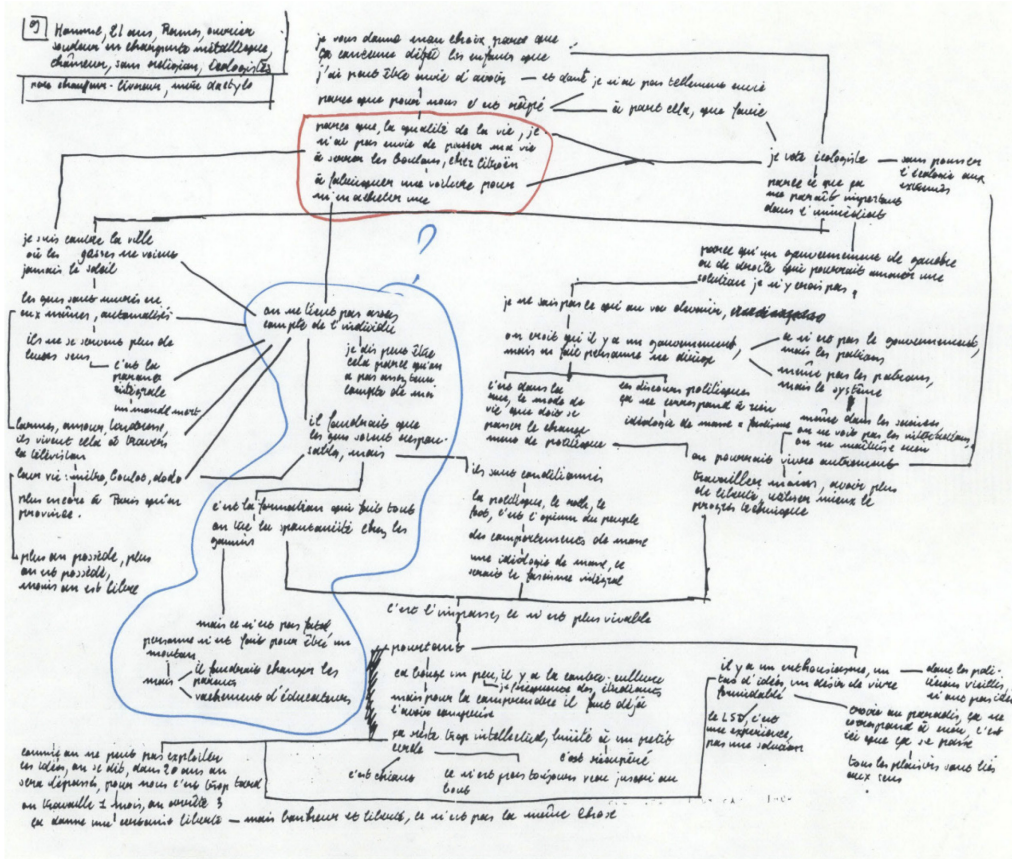 9) Homme, 21 ans, Rennes, ouvrier
soudeur en charpente métallique,
chômeur, sans religion, écologiste
père chauffeur-livreur, mère dactylo
je vous donne mon choix parce que
ça concerne déjà les enfants que
j'ai peut être envie d'avoir — et dont je n'ai pas tellement envie
parce que pour nous c'est râpé
à part cela, que faire
parce que, la qualité de la vie, je
n'ai pas envie de passer ma vie
à serrer les boulons, chez Citroën
à fabriquer une voiture pour
m'en acheter une
je vote écologiste — sans pousser
l'écologie aux
extrêmes
parce que ça
me paraît important
dans l'immédiat
je suis contre la ville
où les gosses ne voient
jamais le soleil
les gens sont murés en
eux mêmes, automatisés
ils ne se servent plus de
leurs sens
c'est la
parano
intégrale
un monde mort
larmes, amour, tendresse,
ils vivent cela à travers
la télévision
leur vie : métro, boulot, dodo
plus encore à Paris qu'en
province.
plus on possède, plus
on est possédé,
moins on est libre
?
on ne tient pas assez
compte de l'individu
je dis peut être
cela parce qu'on
a pas assez tenu
compte de moi
il faudrait que
les gens soient respon-
sables, mais
c'est la formation qui fait tout
on tue la spontanéité chez les
gamins
mais ce n'est pas fatal
personne n'est fait pour être un
mouton
mais
il faudrait changer les
parents
vachement d'éducateurs
parce qu'un gouvernement de gauche
ou de droite qui pourrait amener une
solution je n'y crois pas
je ne sais pas ce qui en va devenir,
on croit qu'il y a un gouvernement,
mais en fait personne ne dirige
ce n'est pas le gouvernement,
mais les patrons
même pas les patrons,
mais le système
c'est dans la
rue, le mode de
vie que doit se
passer le change
ment de politique
les discours politiques
ça ne correspond à rien
idéologie de masse = fascisme
même dans les sciences
on ne voit pas les interactions,
on ne maîtrise rien
on pourrait vivre autrement
travailler moins, avoir plus
de liberté, utiliser mieux le
progrès technique
ils sont conditionnés
la politique, le rock, le
foot, c'est l'opium du peuple
des comportements de masse
une idéologie de masse, ce
serait le fascisme intégral
c'est l'impasse, ce n'est plus vivable
pourtant
ça bouge un peu, il y a la contre-culture
je fréquente des étudiants
mais pour la comprendre il faut déjà
l'avoir comprise
ça reste trop intellectuel, limité à un petit
cercle
c'est récupéré
c'est chiant
ce n'est pas toujours vécu jusqu'au
bout
il y a un enthousiasme, un
tas d'idées, un désir de vivre
formidable
dans les poli-
ticiens vieillis,
le LSD, c'est
une expérience,
pas une solution
croire au paradis, ça ne
correspond à rien, c'est
ici que ça se passe
tous les plaisirs sont liés
aux sens
comme on ne peut pas exploiter
ces idées, on se dit, dans 20 ans on
sera dépassés, pour nous c'est trop tard
on travaille 1 mois, on arrête 3
ça donne une certaine liberté — mais bonheur et liberté, ce n'est pas la même chose